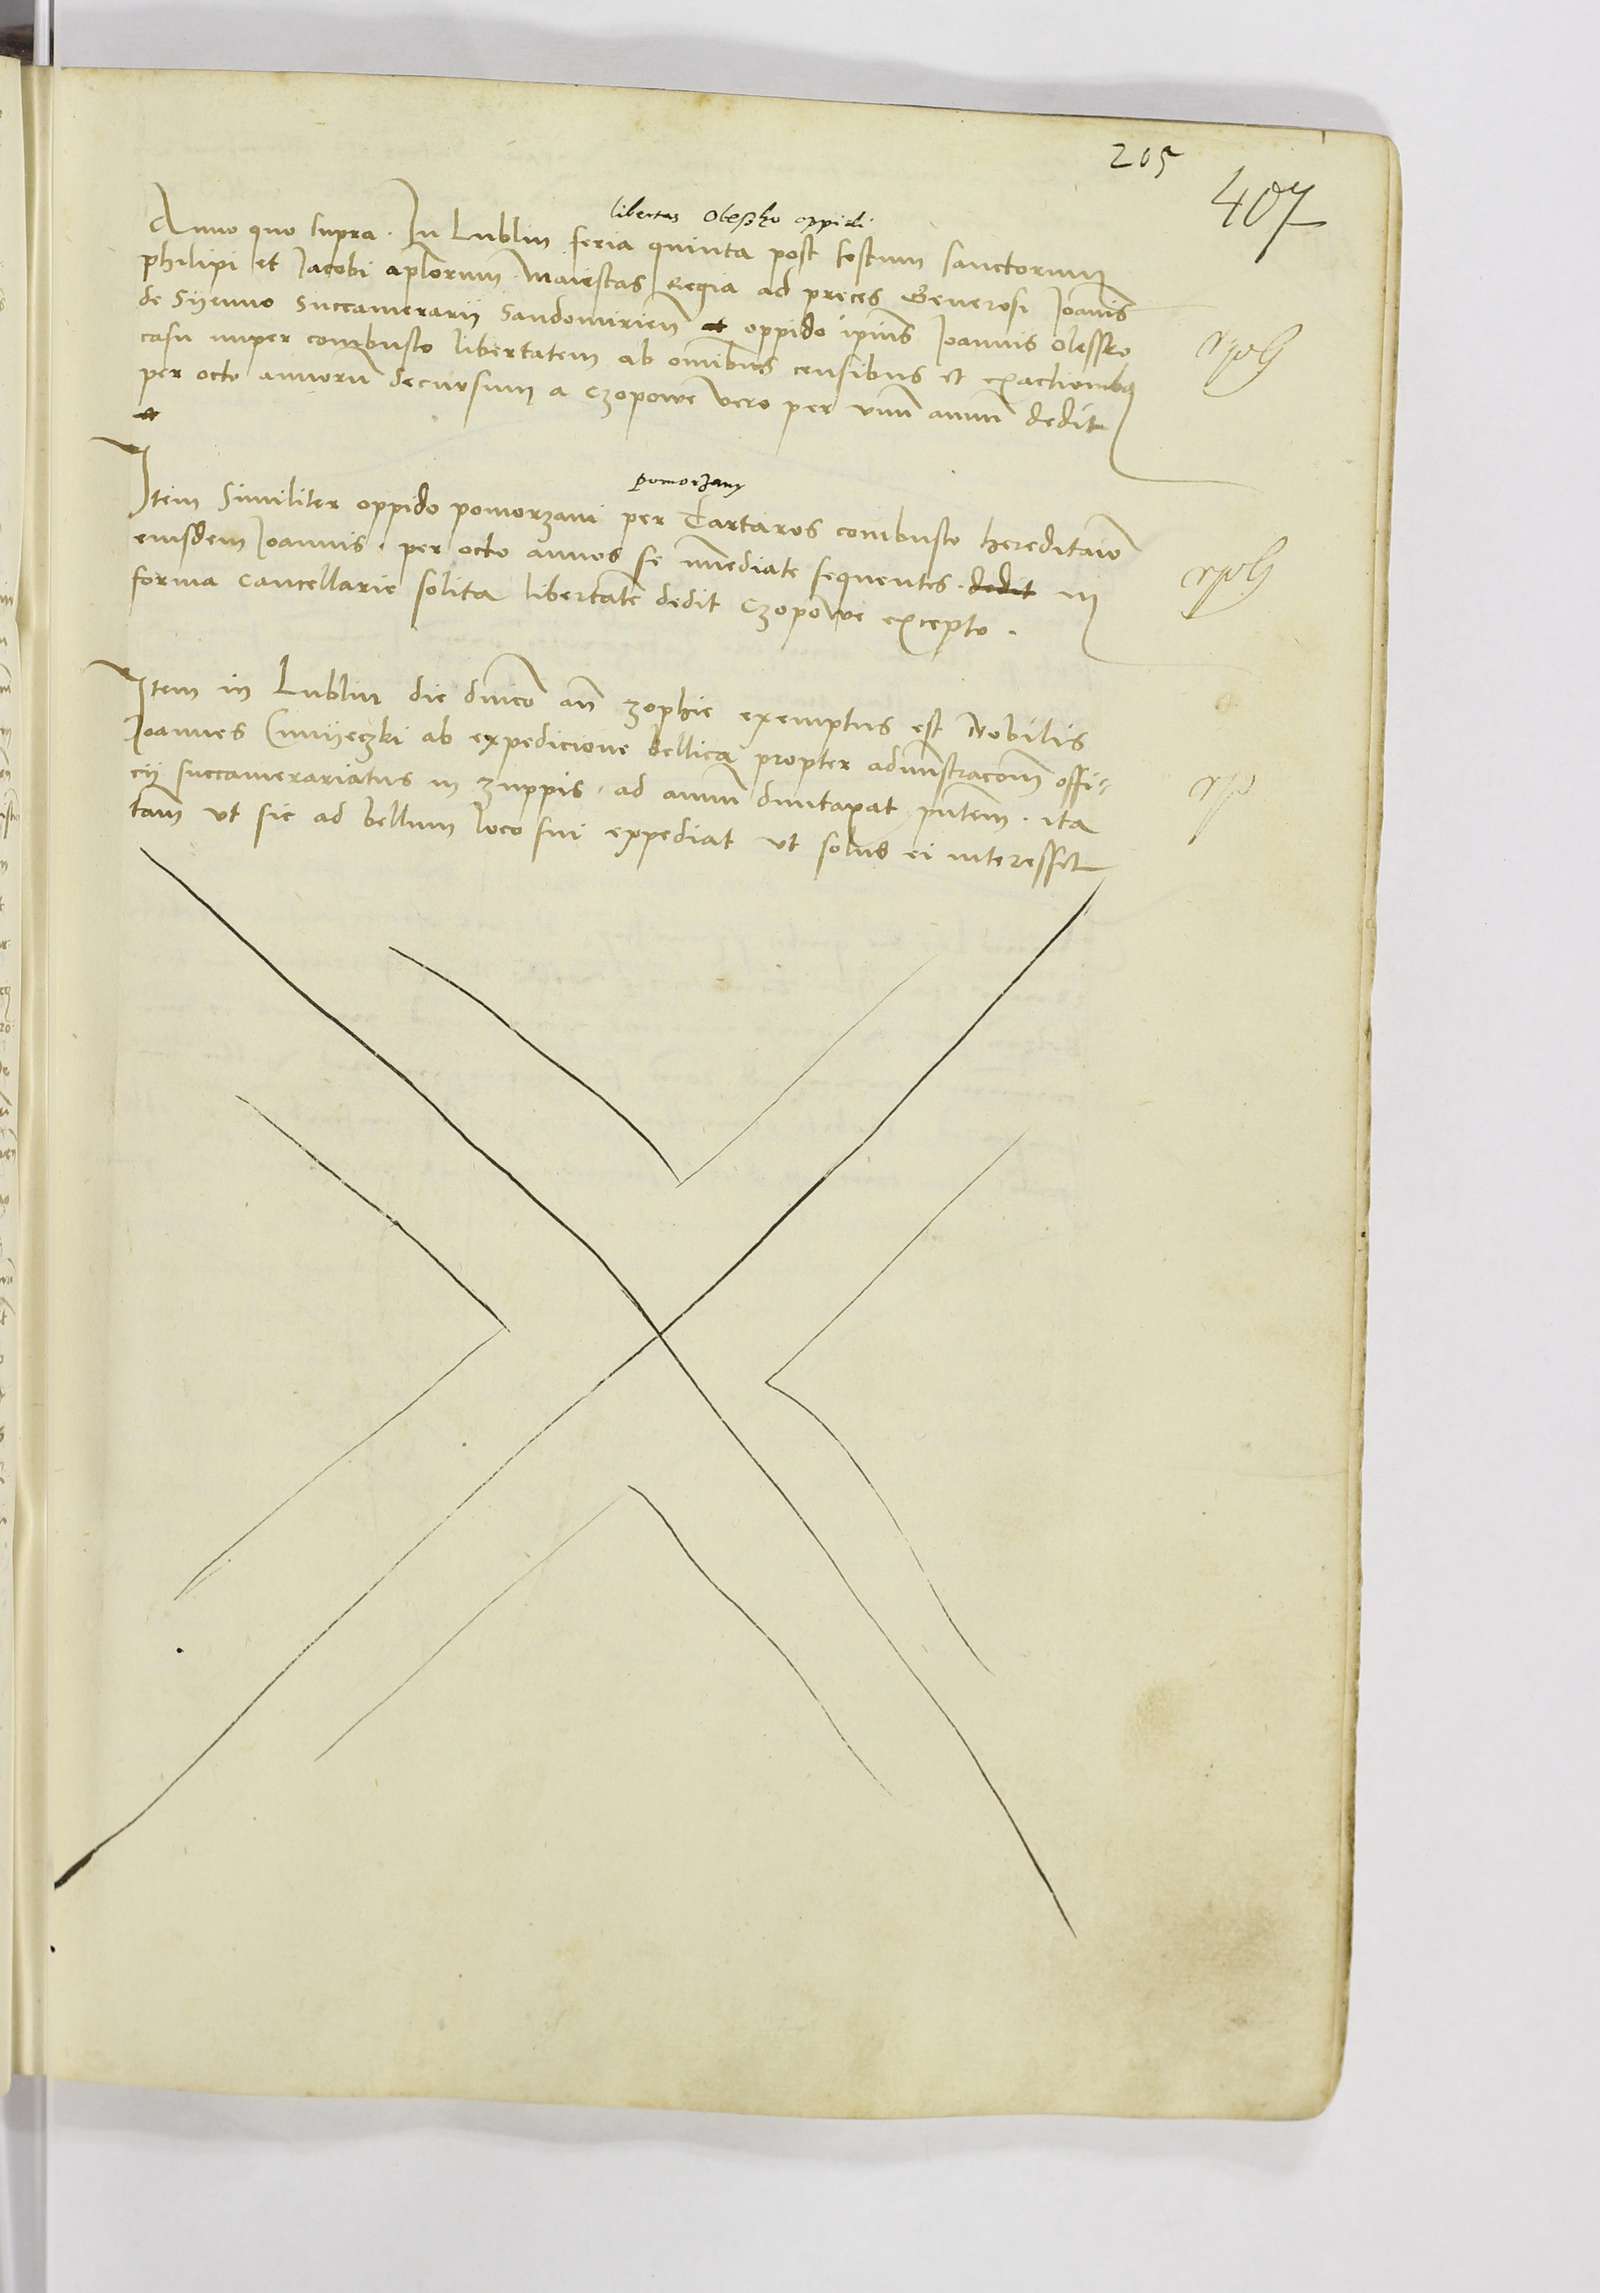 205
407
libertas Olessko oppidi
Anno quo supra. In Lublin feria quinta post festum sanctorum
philipi et Iacobi aplorum Maiestas Regia ad preces Generosi Ioannis
de Syenno Succamerarij Sandomirien oppido ipius Ioannis Olessko
casu nuper combusto libertatem ab omibus censibus et exactionibus
per octo annoru decursum a Czopowe vero per unu annu dedit
pomorzany
Item Similiter oppido pomorzani per Tartaros combusto hereditario
eiusdem Ioannis. per octo annos se immediate sequentes. dedit in
forma cancellarie solita libertate dedit Czopowe excepto.
Item in Lublin die dnico an zophie exemptus est Nobilis
Ioannes ab expedicione bellica propter admnstracom offi-
cij succamerariatus in zuppis. ad annu duntaxat pntem. ita
tam ut sic ad bellum loco sui expediat ut solus ei interesset